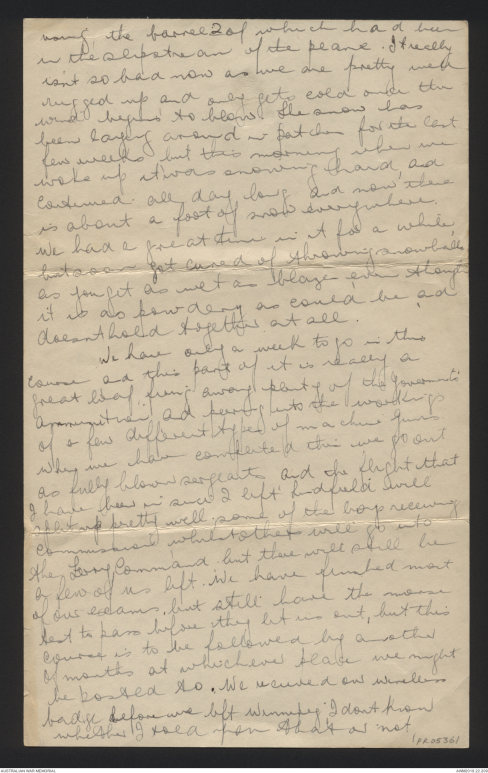 using, the barrel of which had been
in the slipstream of the plane. It really
isnt so bad now as we are pretty well
rugged up and only gets cold once the
wind begins to blow. The snow has
been laying around in patches for the last
few weeks but this morning when we
woke up it was snowing hard, ad
continued all day long ad now there
is about a foot of snow everywhere.
We had a great time in it for a while,
but soon got cured of throwing snowballs
as you get as wet as blazes even though
it is as powdery as could be ad
doesnt hold together at all.
We have only a week to go in this
course ad this part of it is really a
great loaf, firing away plenty of the Governments
ammunition ad peering into the workings
of a few different types of machine guns.
When we have completed this we go out
as fully blown sergeants and the flight that
I have been in since I left Lindfield will
split up pretty well, some of the boys receiving
commissions, whilst others will go into
the Ferry Command but there will still be
a few of us left. We have finished most
of our exams, but still have the morse
test to pass before they let us out, but this
course is to be followed by another
of months at whichever place we might
be posted to. We received our wireless
badge before we left Winnipeg I dont know
whether I told you that or not.
PR05361
AUSTRALIAN WAR MEMORIAL